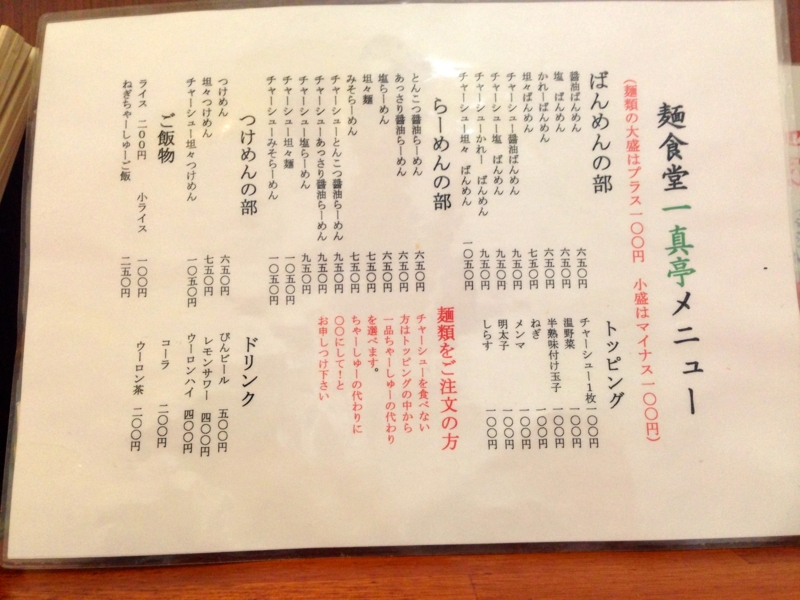 麺食堂 一真亭 メニュー
(麺類の大盛はプラス一〇〇円 小盛はマイナス一〇〇円)
ばんめんの部
醤油ばんめん 六五〇円
塩 ばんめん 六五〇円
かれーばんめん 六五〇円
坦々ばんめん 七五〇円
チャーシュー醤油ばんめん 九五〇円
チャーシュー塩 ばんめん 九五〇円
チャーシューかれー ばんめん 九五〇円
チャーシュー坦々 ばんめん 一〇五〇円
らーめんの部
とんこつ醤油らーめん 六五〇円
あっさり醤油らーめん 六五〇円
塩らーめん 六五〇円
坦々麺 七五〇円
みそらーめん 七五〇円
チャーシューとんこつ醤油らーめん 九五〇円
チャーシューあっさり醤油らーめん 九五〇円
チャーシュー塩らーめん 九五〇円
チャーシュー坦々麺 一〇五〇円
チャーシューみそらーめん 一〇五〇円
つけめんの部
つけめん 六五〇円
坦々つけめん 七五〇円
チャーシュー坦々つけめん 一〇五〇円
ご飯物
ライス 二〇〇円 小ライス 一〇〇円
ねぎちゃーしゅーご飯 二五〇円
トッピング
チャーシュー1枚 一〇〇円
温野菜 一〇〇円
半熟味付け玉子 一〇〇円
ねぎ 一〇〇円
メンマ 一〇〇円
明太子 一〇〇円
しらす 一〇〇円
麺類をご注文の方
チャーシューを食べない
方はトッピングの中から
一品ちゃーしゅーの代わり
を選べます。
ちゃーしゅーの代わりに
〇〇にして!と
お申しつけ下さい
ドリンク
びんビール 五〇〇円
レモンサワー 四〇〇円
ウーロンハイ 四〇〇円
コーラ 二〇〇円
ウーロン茶 二〇〇円